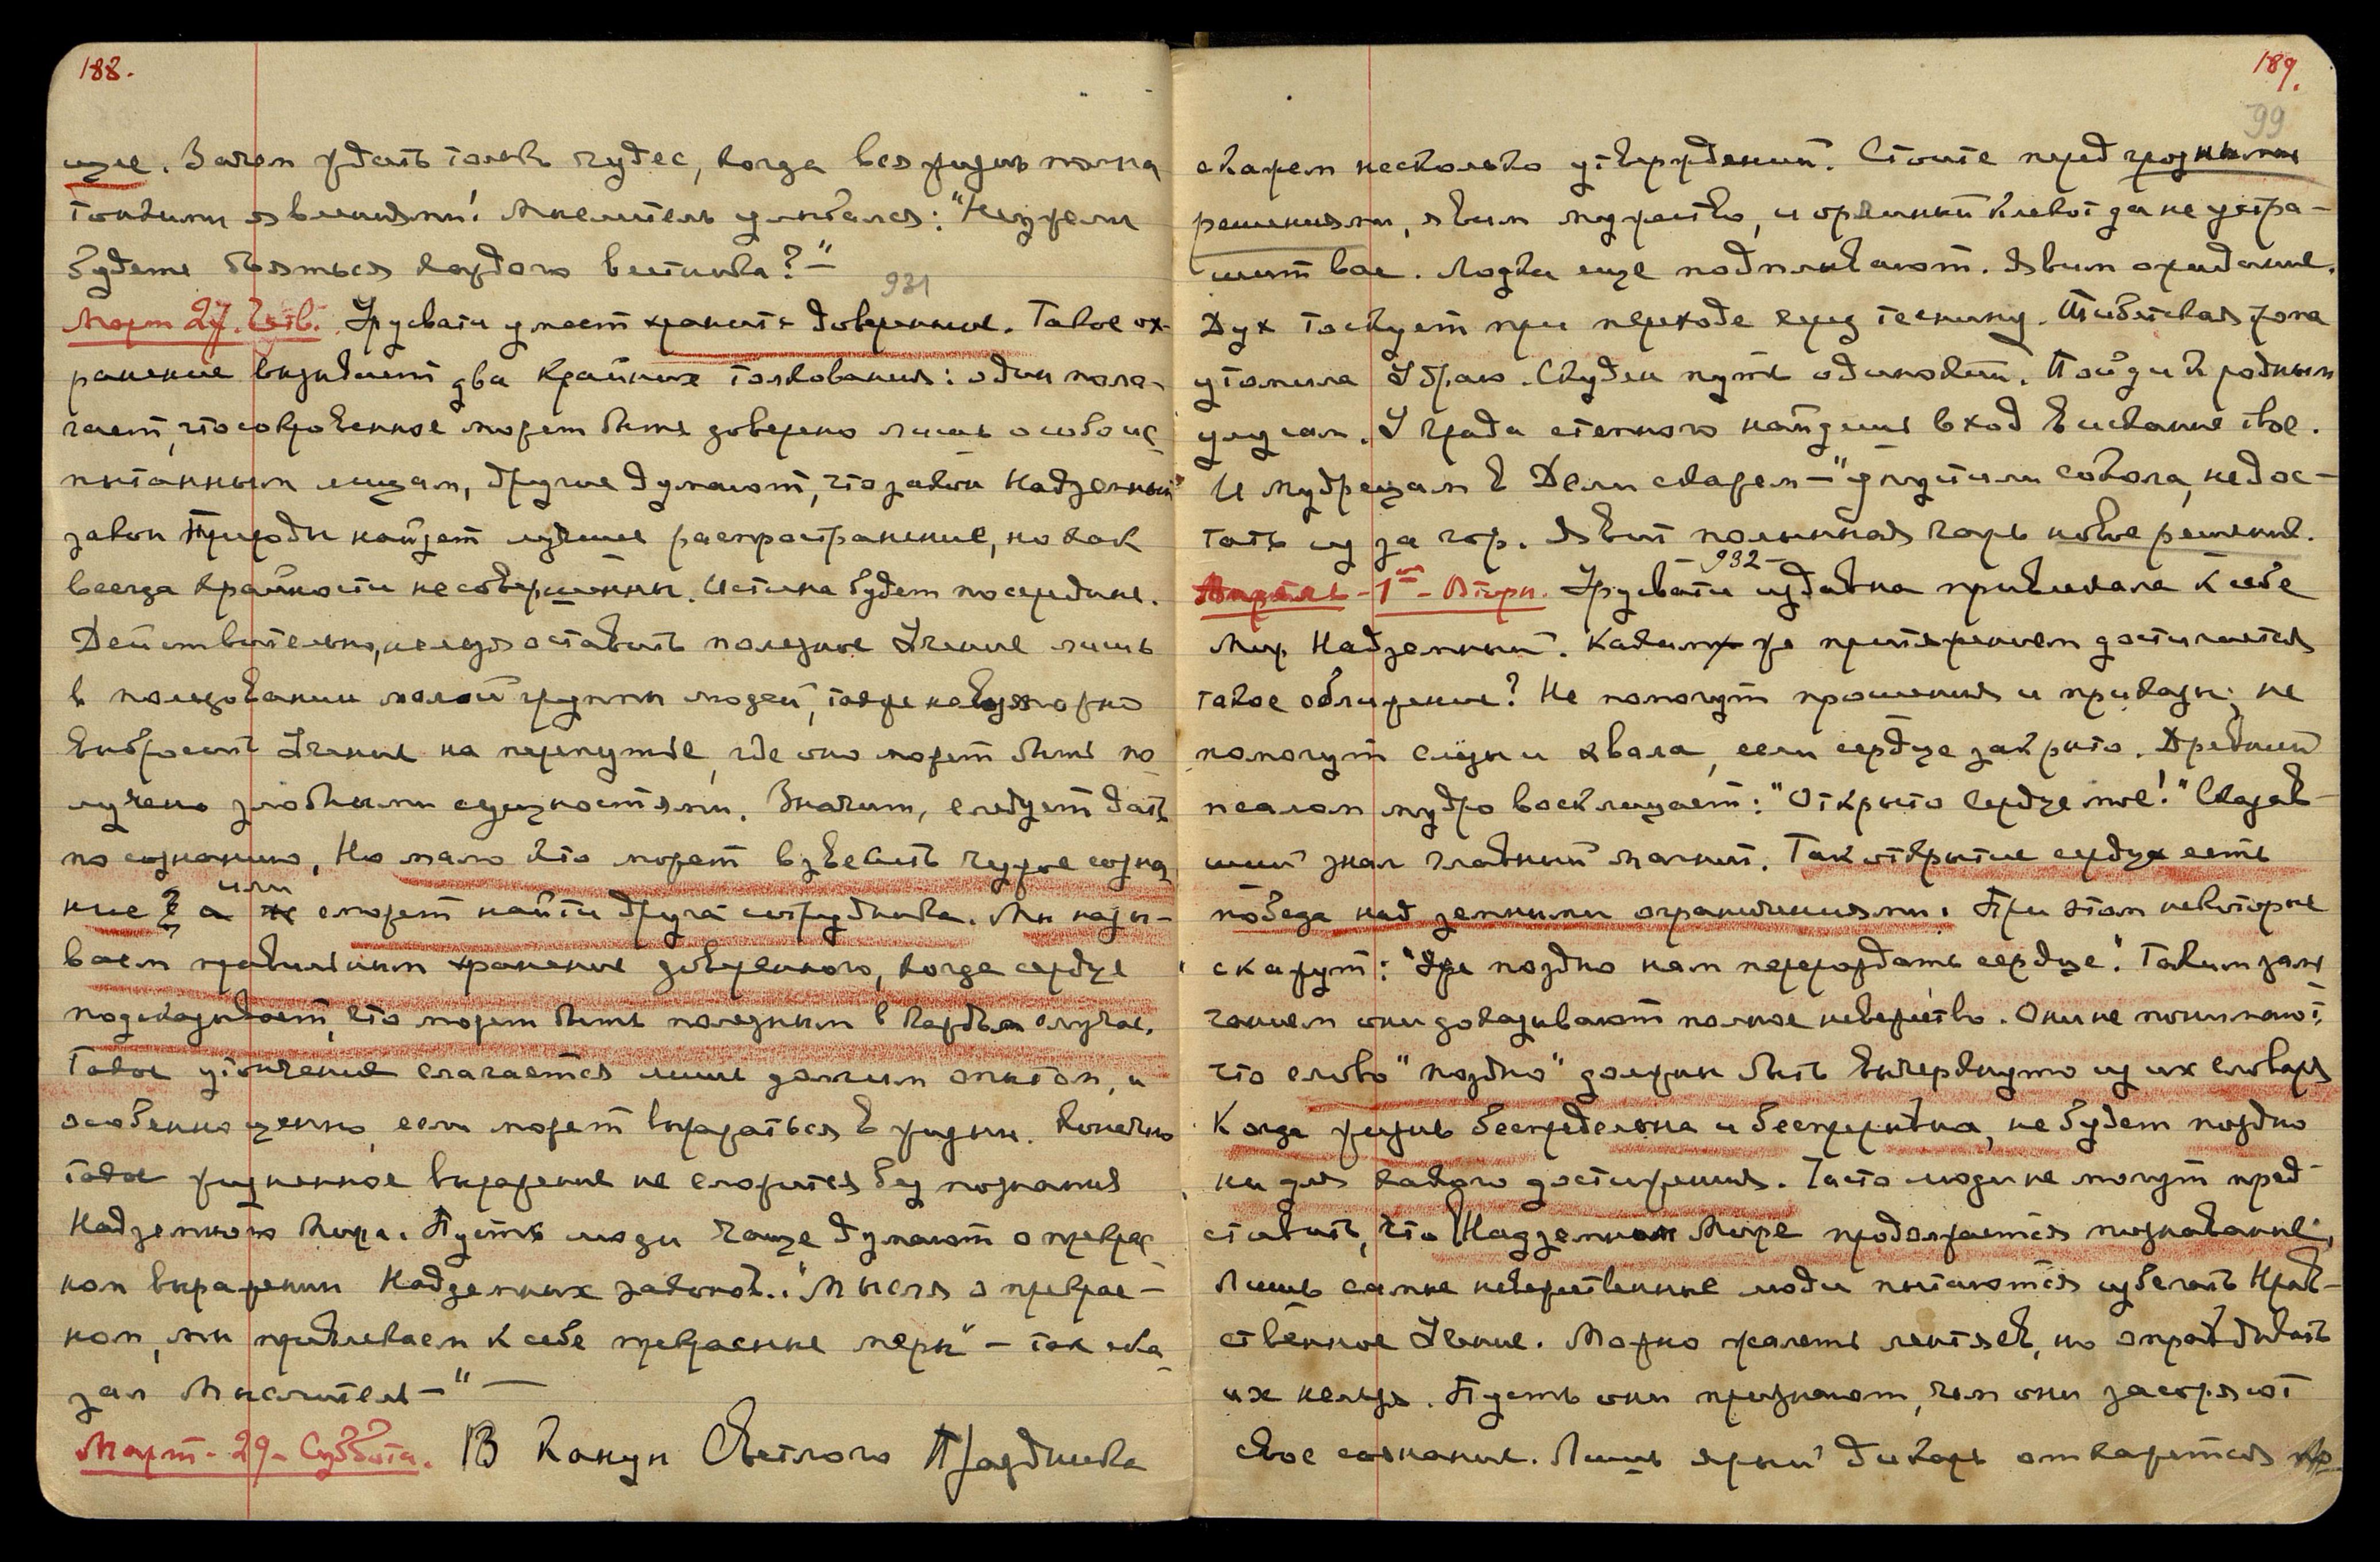 188.
щие. Зачем ждать только чудес, когда вся жизнь полна
тонкими явлениями! Мыслитель улыбался: "Неужели
будете бояться каждого вестника?"—
931
Март 27. Четв. Урусвати умеет хранить доверенное. Такое ох-
ранение вызывает два крайних толкования: одни пола-
гают, что сокровенное может быть доверено лишь особо ис-
пытанным лицам, другие думают, что закон Надземный
закон Природы найдет лучшее распространение, но как
всегда крайности несовершенны. Истина будет посередине.
Действительно, нельзя оставить полезное Учение лишь
в пользовании малой группы людей, также невозможно
выбросить Учение на перепутье, где оно может быть по-
лучено злобными сущностями. Значит, следует дать
по сознанию, Но мало кто может взвесить чужое созна-
или
ние? а не сможет найти друга сотрудника. Мы назы-
ваем правильным хранение доверенного, когда сердце
подсказывает, что может быть полезным в каждом случае.
Такое утончение слагается лишь долгим опытом, и
особенно ценно, если может выражаться в жизни. Конечно
такое жизненное выражение не сложится без познания
Надземного Мира. Пусть люди чаще думают о прекрас-
ном выражении Надземных законов. "Мысля о прекрас-
ном, мы привлекаем к себе прекрасные меры" — так ска-
зал Мыслитель—"—
Март - 29 - Суббота. В Канун Светлого Праздника
189.
99
скажем несколько утверждений. Стоите перед грозными
решениями, явим мужество, и орлиный клекот да не устра-
шит вас. Лодки еще подплывают. Явим ожидание.
Дух тоскует при переходе через теснину. Тибетская зона
утомила Убраю. Скуден путь одинокий. Пойди к родным
улусам. У града степного найдешь вход в искание твое.
И мудрецам в Дели скажем — "упустили сокола, не дос-
тать из за гор. Явит полынная гарь новое решение.
- 932 -
Апрель - 1ое - Вторн. Урусвати издавна привлекала к себе
Мир Надземный. Каким же притяжением достигается
такое сближение? Не помогут прошения и приказы; не
помогут слезы и хвала, если сердце закрыто. Древний
псалом мудро восклицает: "Открыто сердце мое!" Сказав-
ший знал главный магнит. Так открытие сердца есть
победа над земными ограничениями. При этом некоторые
скажут: "Уже поздно нам перерождать сердце". Таким замы-
чанием они доказывают полное невежество. Они не понимают,
что слово "поздно" должны быть вычеркнуто из их словаря
Когда жизнь беспредельна и беспрерывна, не будет поздно
ни для какого достижения. Часто люди не могут пред-
ставить, что Надземном Мире продолжается познавание,
Лишь самые невежественные люди пытаются избегать Нрав-
ственное Учение. Можно жалеть лентяев, но оправдывать
их нельзя. Пусть они признают, чем они засоряют
свое сознание. Лишь ярый дикарь откажется